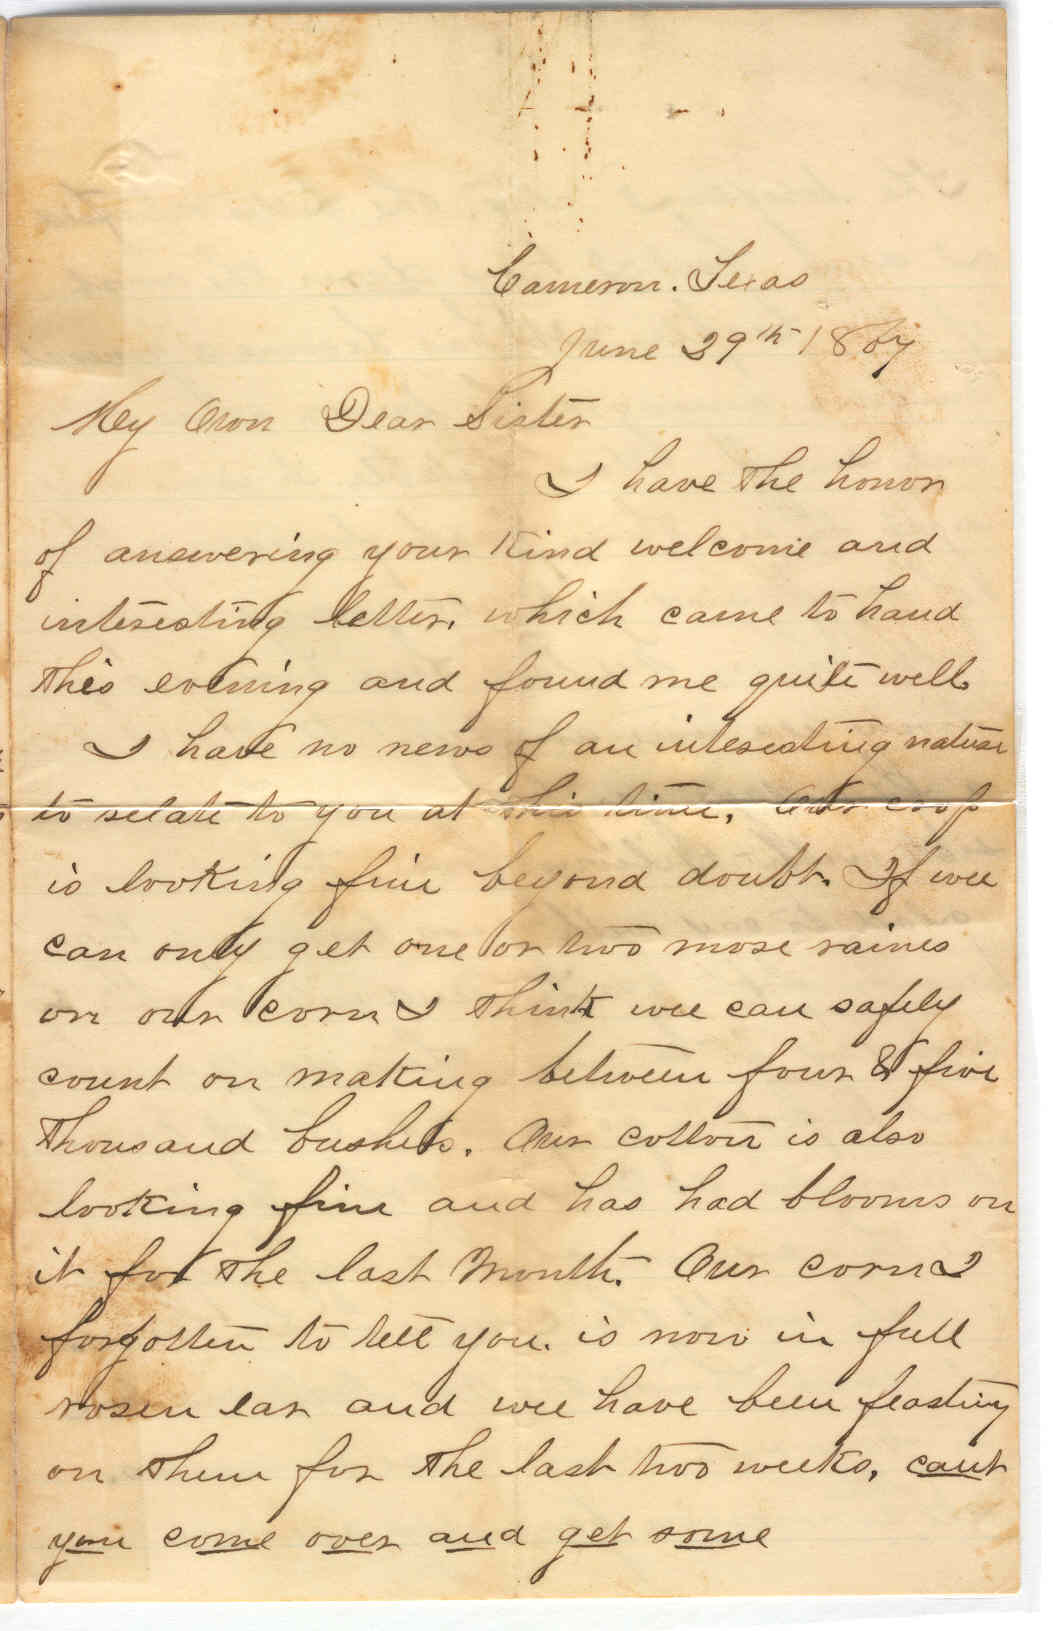 Cameron. Texas
June 29th 18
My Own Dear Sister
I have the honor
of answering your kind welcome and
interesting letter. which came to hand
this evening and found me quite well.
I have no news of an interesting nature
to relate to you at this time. Our crop
is looking fine beyond doubt. If wee
can only get one or two more raines
on our corn I think wee can safely
count on making between four & five
thousand bushels. Our cotton is also
looking fine and has had blooms on
it for the last Month. Our corn I
forgotten to tell you. is now in full
rosen ear and wee have been feasting
on them for the last two weeks, cant
you come over and get some